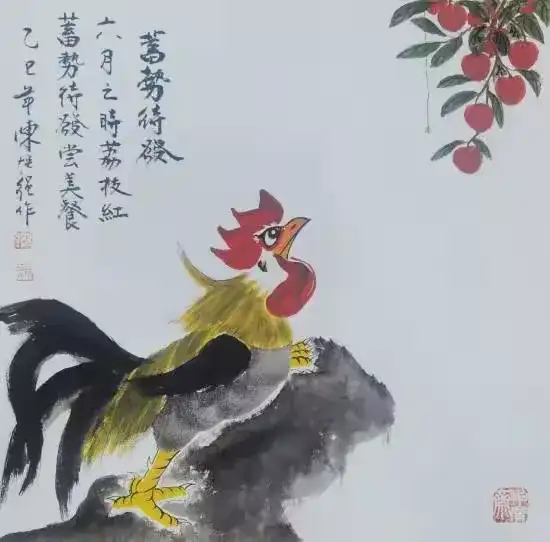 蓄勢待發
六月之時荔枝紅
蓄勢待發尝美餐
乙巳年陳
作